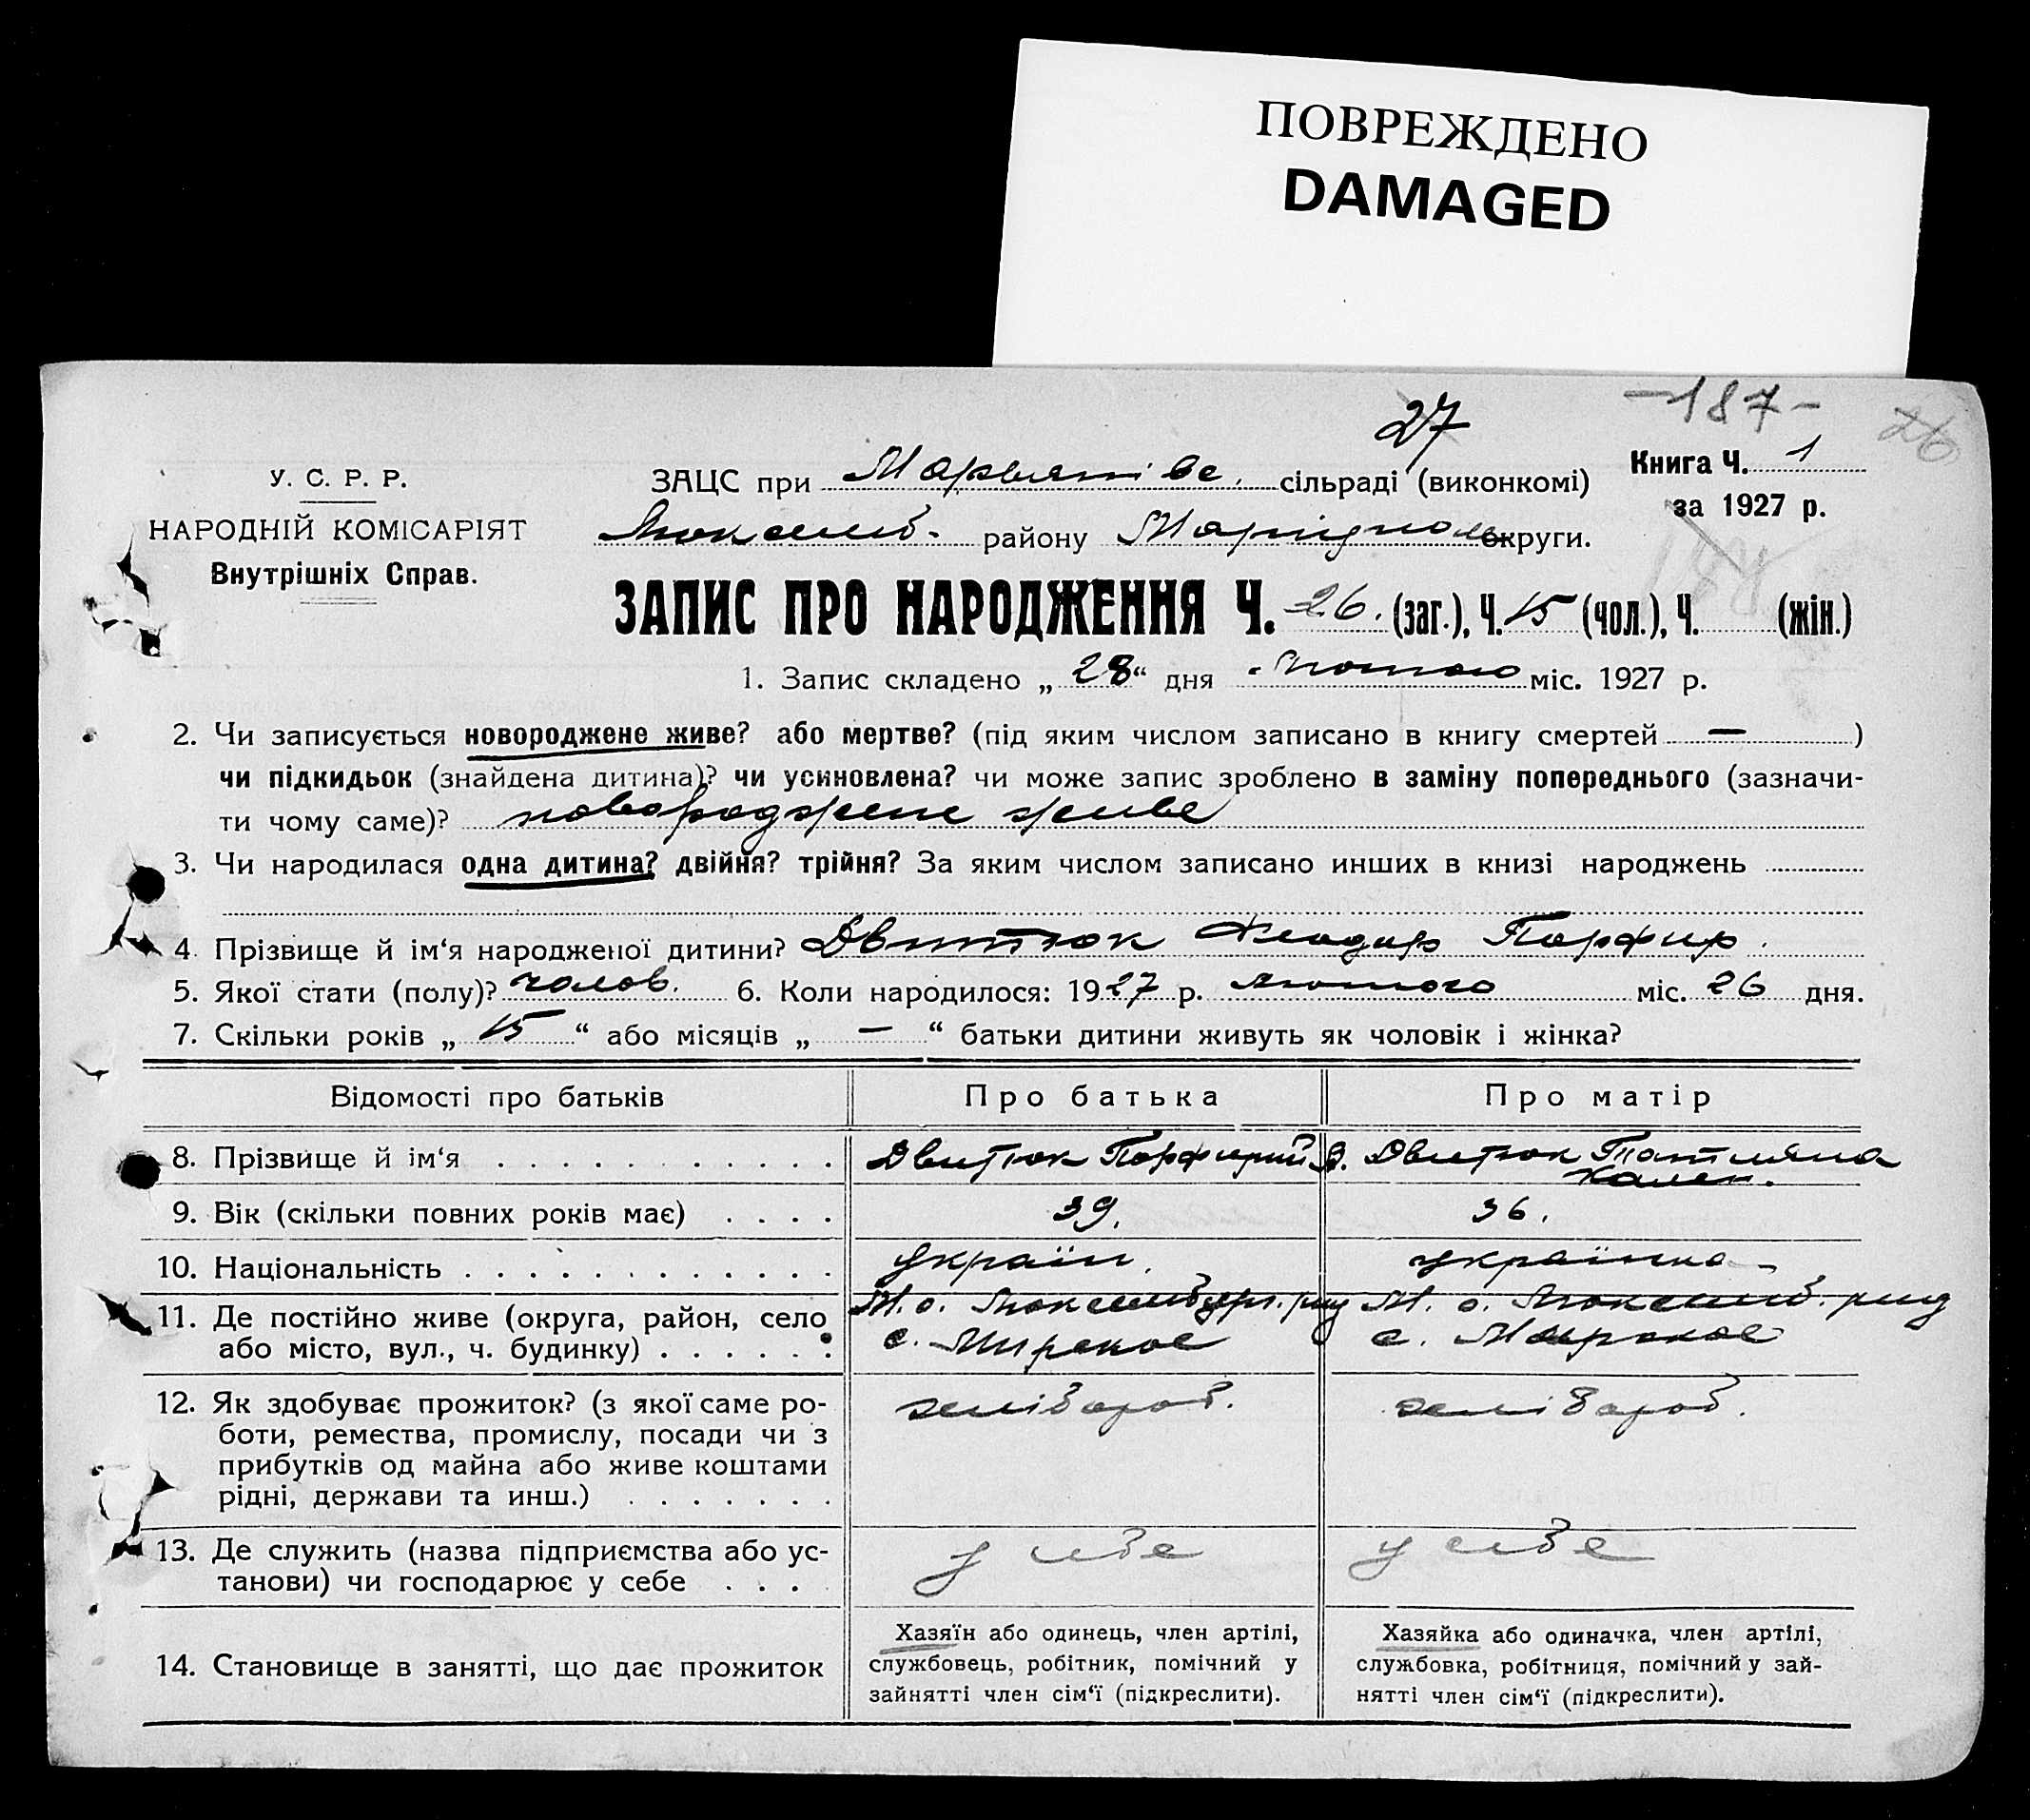 ПОВРЕЖДЕНО
DAMAGED
27
-187-
26
У. С. Р. Р.
НАРОДНІЙ КОМІСАРІЯТ
Внутрішніх Справ.
ЗАЦС при сільраді (виконкомі)
Книга Ч. 1
за 1927 р.
Люксемб. району Маріюпол округи.
ЗАПИС ПРО НАРОДЖЕННЯ Ч. 26. (заг.), Ч. 15 (чол.), Ч. (жін.)
1. Запис складено „ 28 “ дня Лютого міс. 1927 р.
2. Чи записується новороджене живе? або мертве? (під яким числом записано в книгу смертей — )
чи підкидьок (знайдена дитина)? чи усиновлена? чи може запис зроблено в заміну попереднього (зазначи-
ти чому саме)? новороджене живе
3. Чи народилася одна дитина? двійня? трійня? За яким числом записано инших в книзі народжень
4. Прізвище й ім‘я народженої дитини? Двитюк Порфир.
5. Якої стати (полу)? чолов. 6. Коли народилося: 1927 р. лютого міс. 26 дня.
7. Скільки років „ 15 “ або місяців „ — “ батьки дитини живуть як чоловік і жінка?
Відомості про батьків Про батька Про матір
8. Прізвище й ім‘я Двитюк Порфирий Двитюк Татияна
9. Вік (скільки повних років має) 39. 36.
10. Національність україн. українка
11. Де постійно живе (округа, район, село М. о. Люксембург. М. о. Люксемб.
або місто, вул., ч. будинку) с. Мирское с. Мирское
12. Як здобуває прожиток? (з якої саме ро- хліборот. хлібороб.
боти, ремества, промислу, посади чи з
прибутків од майна або живе коштами
рідні, держави та инш.)
13. Де служить (назва підприємства або ус- у себе у себе
танови) чи господарює у себе
14. Становище в занятті, що дає прожиток
Хазяїн або одинець, член артілі,
службовець, робітник, помічний у
зайнятті член сім‘ї (підкреслити).
Хазяйка або одиначка, член артілі,
службовка, робітниця, помічний у зай-
нятті член сім‘ї (підкреслити).